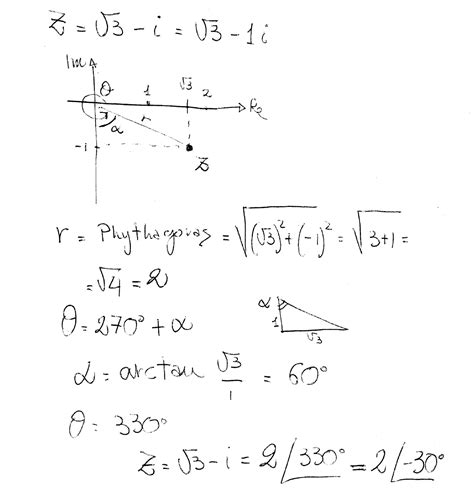 Z = √3 - i = √3 - 1i
Im
θ 1 √3 2 Re
α r
-1
Z
r = Phythagoras = √((√3)² + (-1)²) = √(3+1) =
= √4 = 2
θ = 270° + α
α
1
√3
α = arctan √3/1 = 60°
θ = 330°
Z = √3 - i = 2∠330° = 2∠-30°